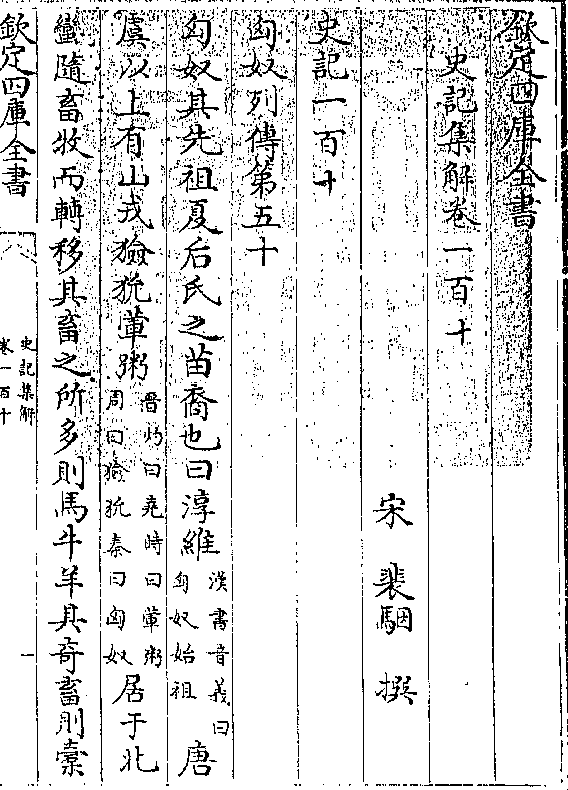 欽定四庫全書
史記集解卷一百十
宋 裴駰 撰
史記一百十
匈奴列傳第五十
匈奴其先祖夏后氏之苗裔也曰淳維漢書音義曰匈奴始祖唐
虞以上有山戎獫狁葷粥晉灼曰堯時曰葷粥周曰獫狁秦曰匈奴居于北
蠻隨畜牧而轉移其畜之所多則馬牛羊其奇畜則橐
欽定四庫全書
史記集解
卷一百十
一